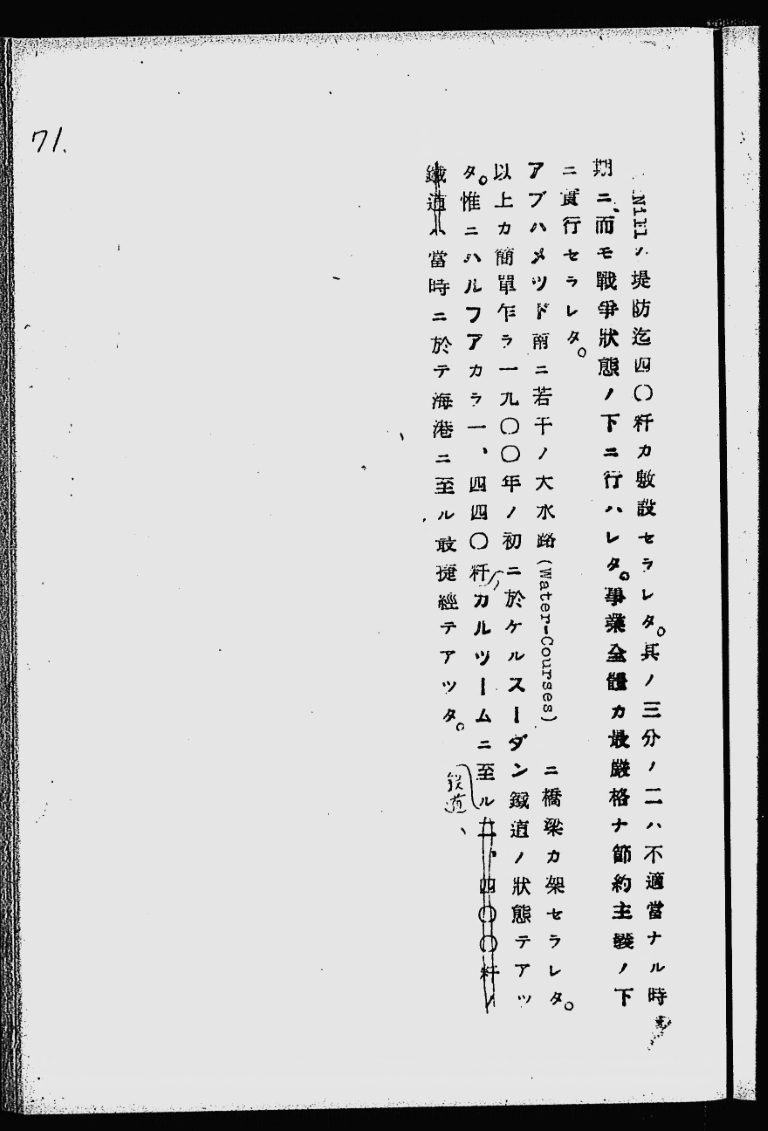 71.
Nillノ堤防迄四〇粁カ敷設セラレタ。其ノ三分ノ二ハ不適當ナル時
期ニ、而モ戰爭狀態ノ下ニ行ハレタ。事業全體カ最嚴格ナ節約主義ノ下
ニ實行セラレタ。
アブハメツド南ニ若干ノ大水路(Water-Courses)ニ橋梁カ架セラレタ。
以上カ簡單乍ラ一九〇〇年ノ初ニ於ケルスーダン鐵道ノ狀態テアツ
タ。惟ニハルフアカラ一、四四〇粁カルツームニ至ル二、四〇〇粁ノ
鐵道、
鐵道ハ當時ニ於テ海港ニ至ル最捷經テアツタ。